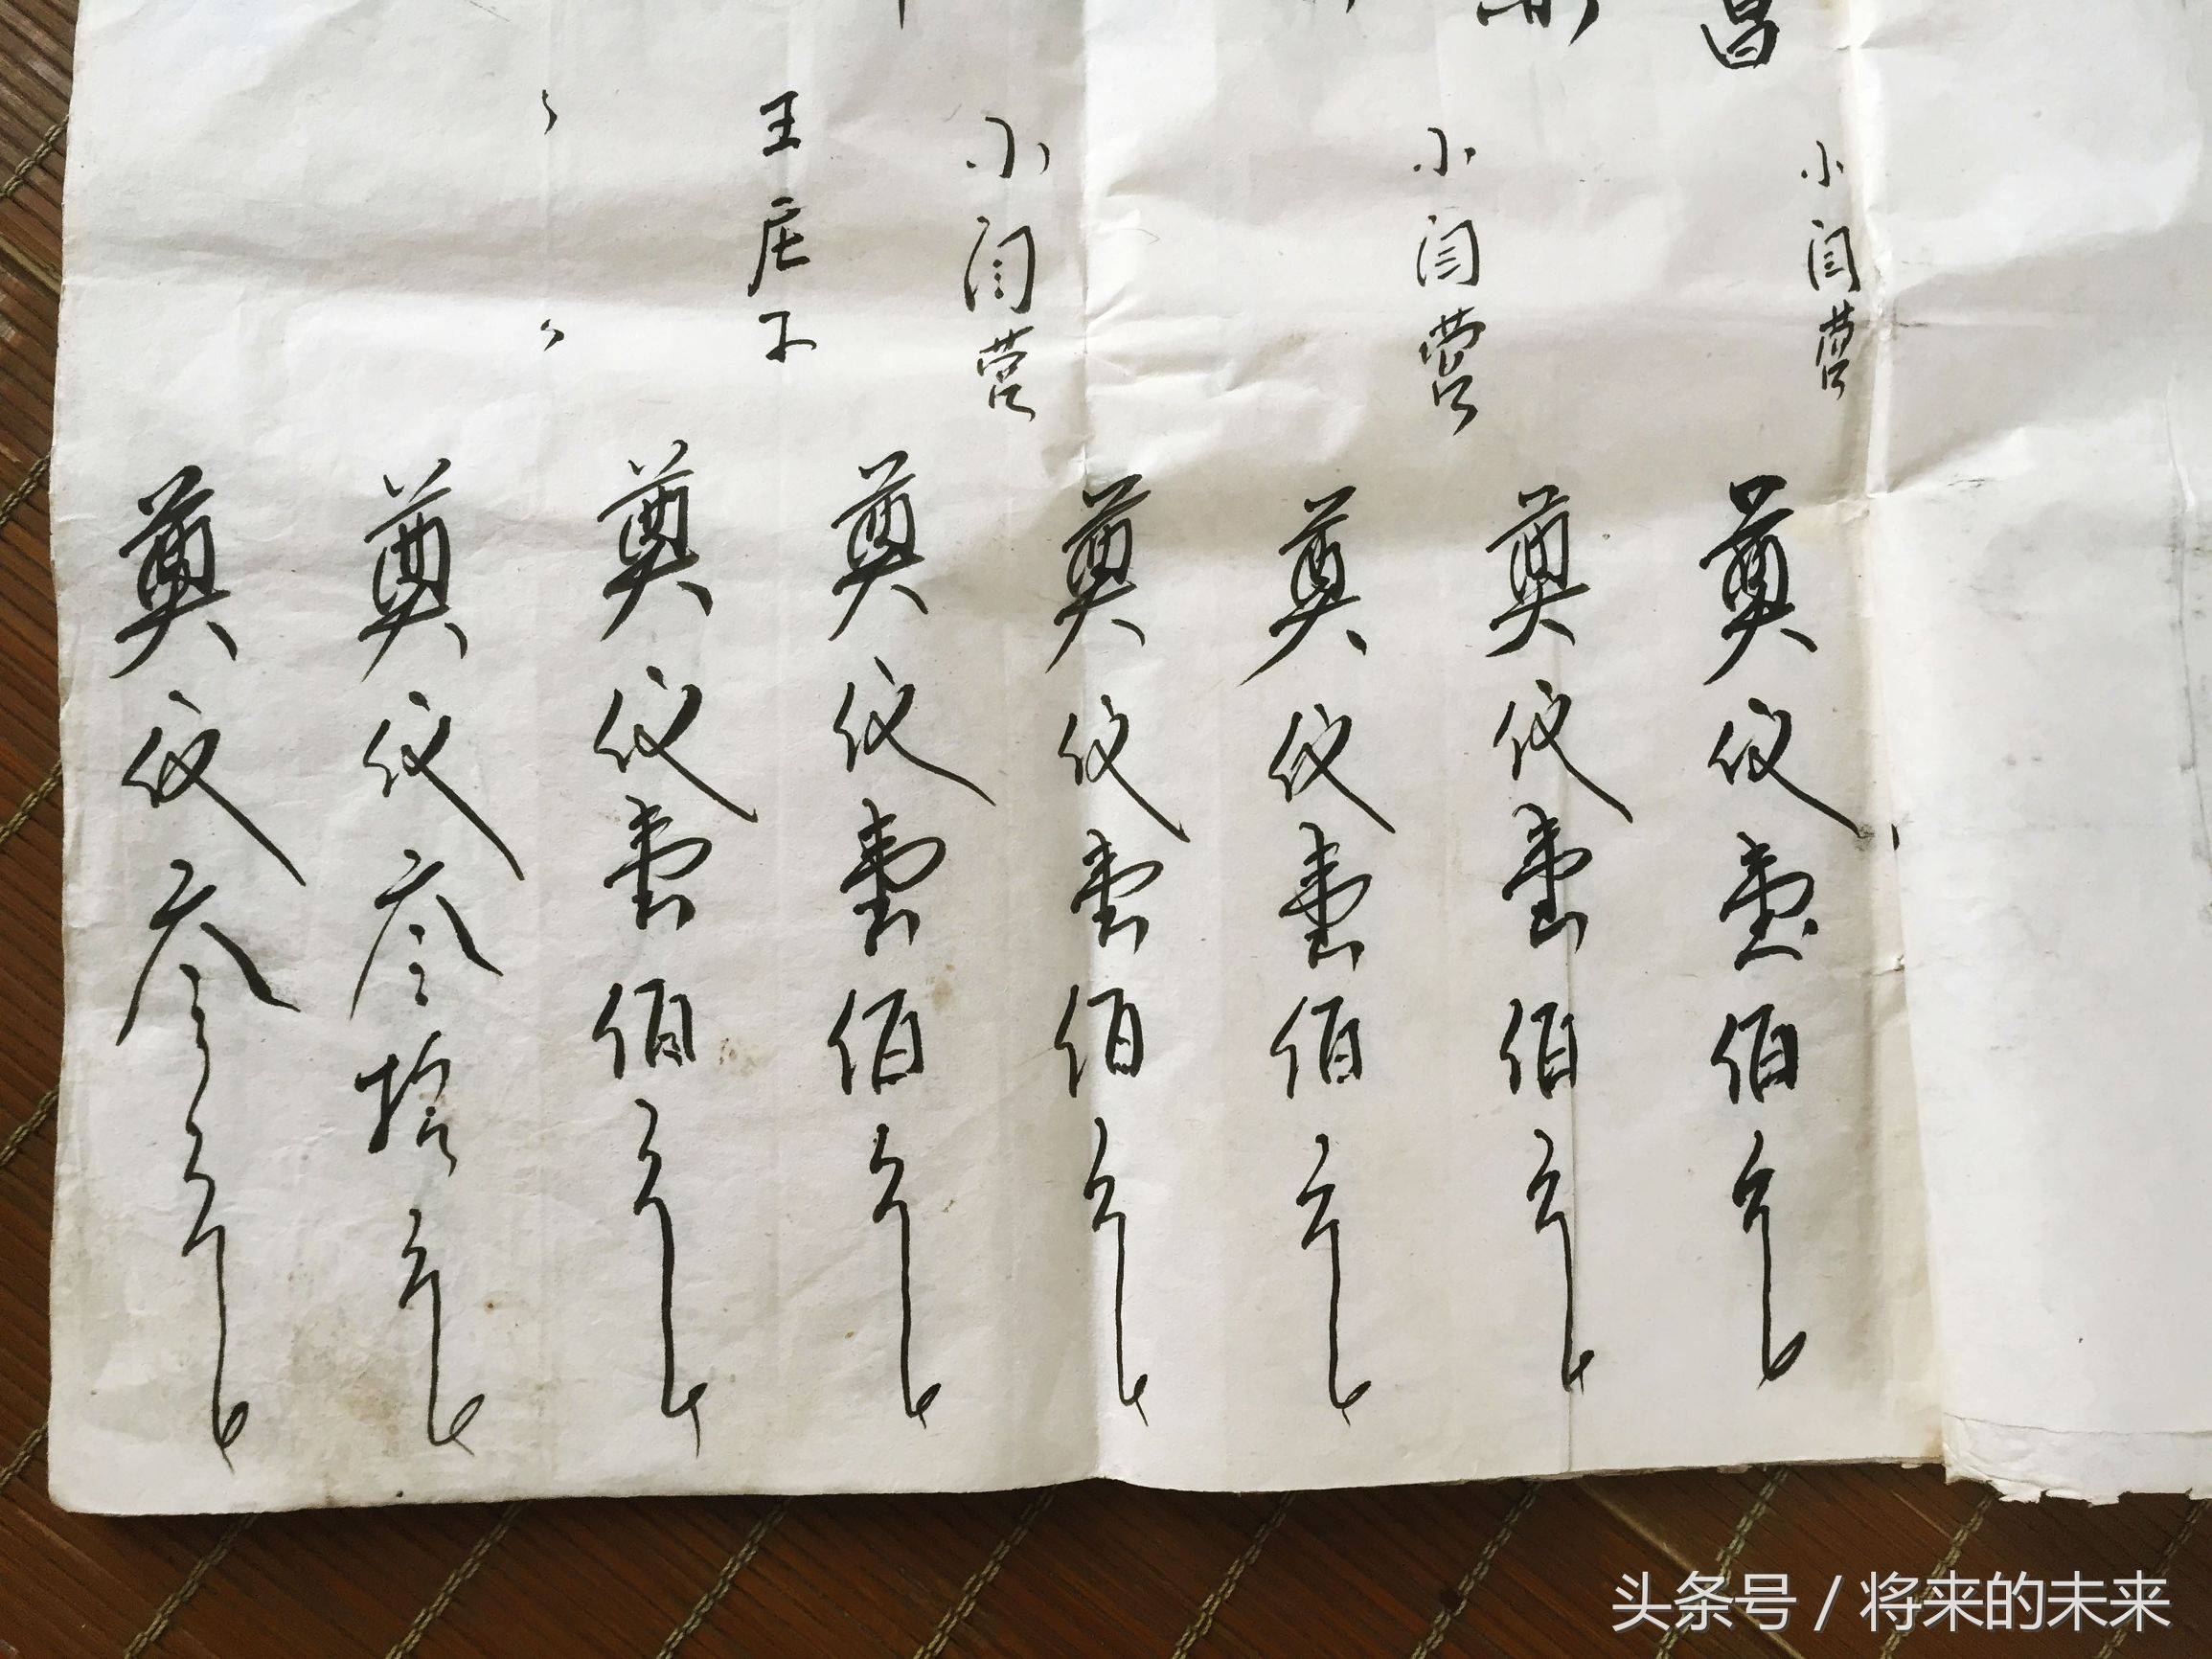 小闫营
昌
奠仪壹佰元
奠仪壹佰元
小闫营
奠仪壹佰元
奠仪壹佰元
小闫营
奠仪壹佰元
王庄子
奠仪壹佰元
奠仪叁拾元
奠仪叁元
头条号 / 将来的未来